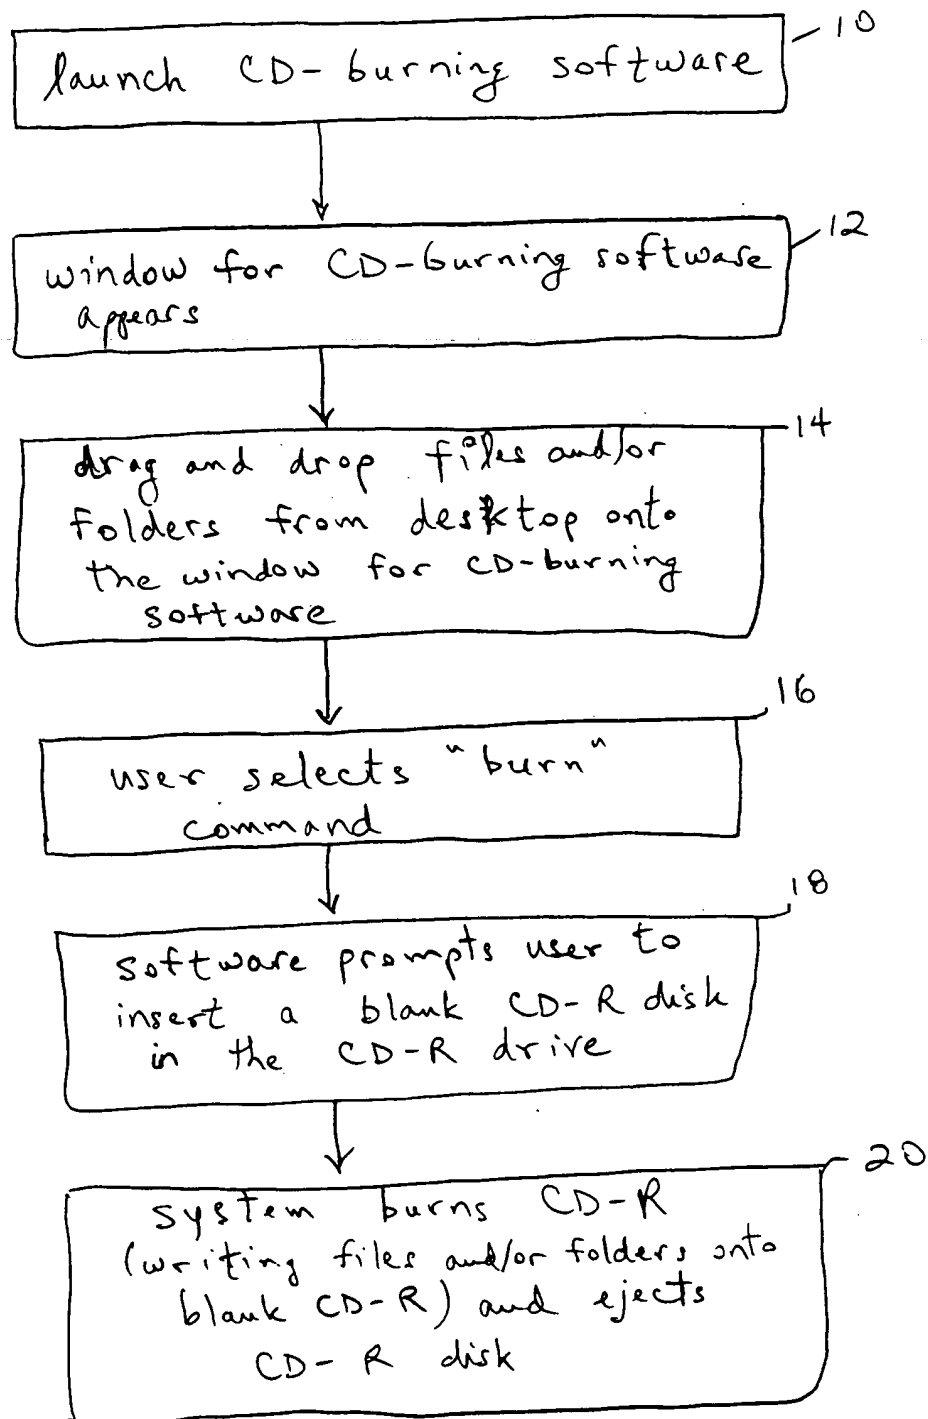 10
launch CD-burning software
12
window for CD-burning software
appears
14
drag and drop files and/or
folders from desktop onto
the window for CD-burning
software
16
user selects "burn"
command
18
software prompts user to
insert a blank CD-R disk
in the CD-R drive
20
system burns CD-R
(writing files and/or folders onto
blank CD-R) and ejects
CD-R disk